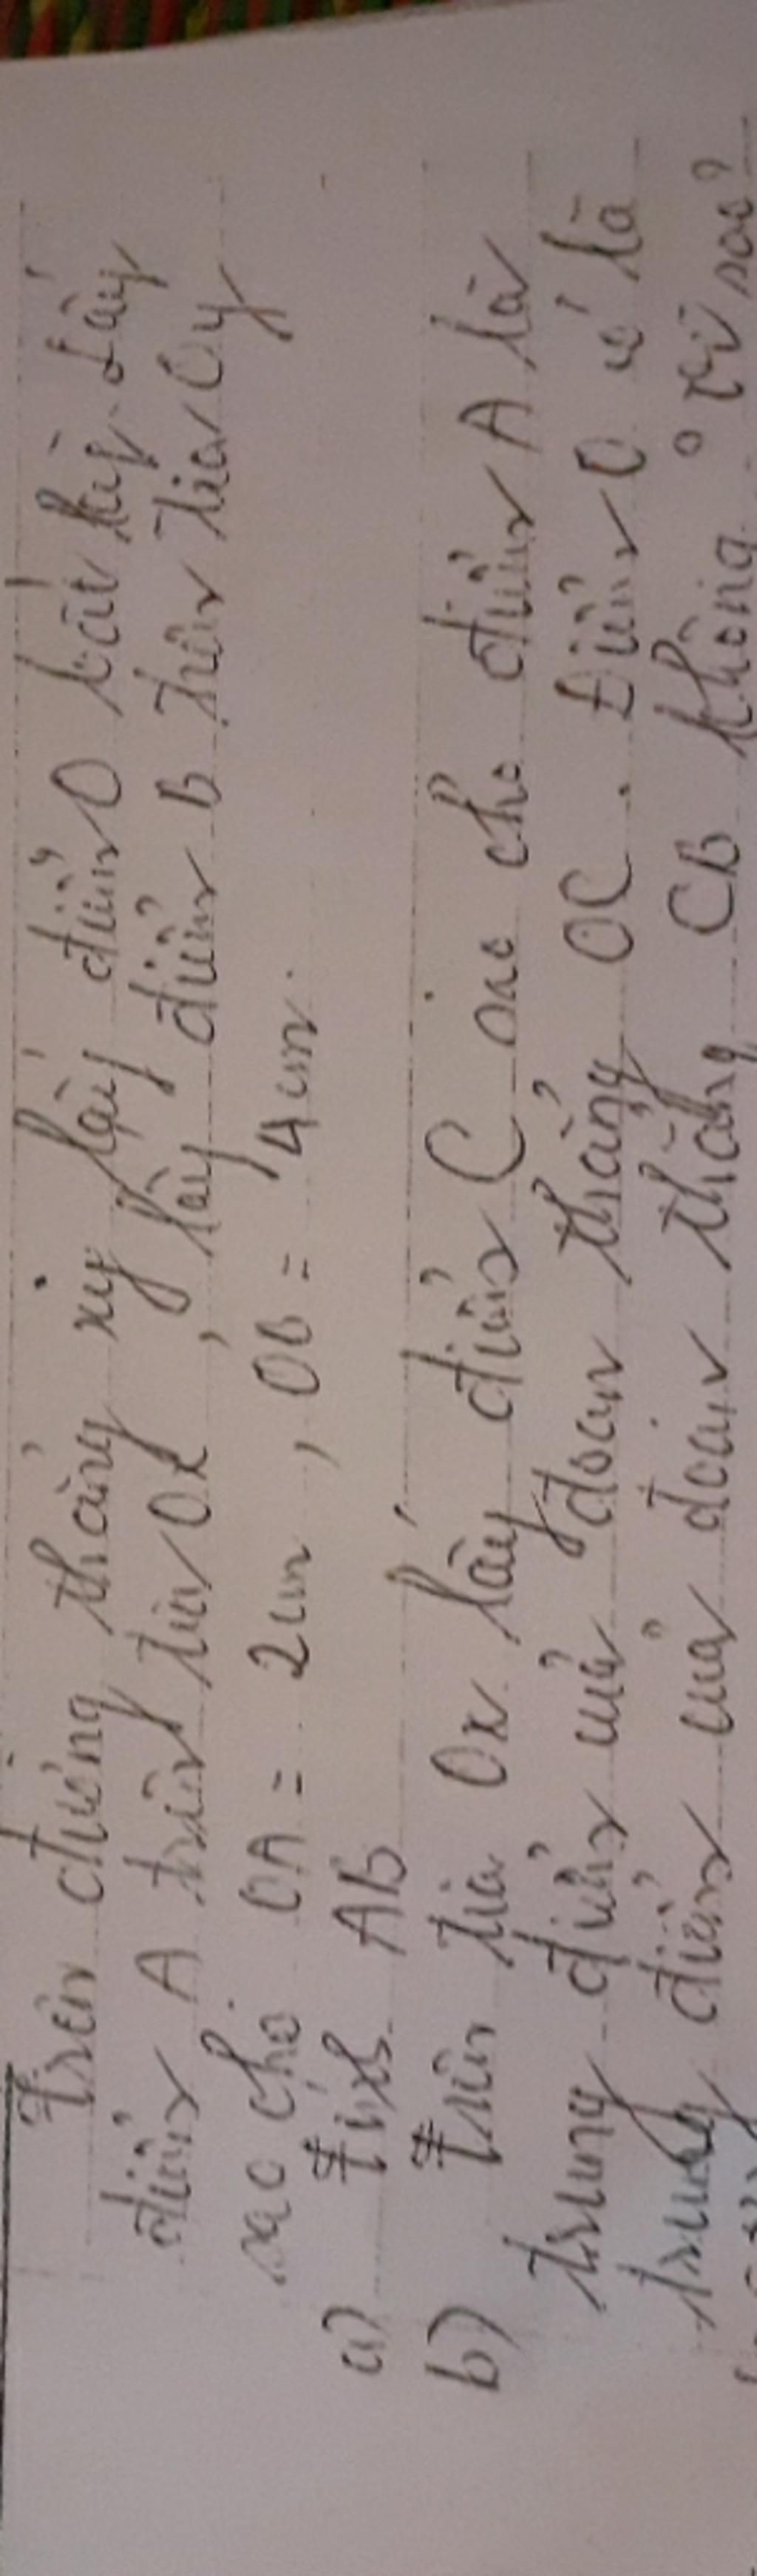 Trên đường thẳng xy lấy điểm O bất kỳ. Lấy
điểm A trên tia Ox, lấy điểm B trên tia Oy
sao cho OA = 2cm, OB = 4cm.
a) Tính AB
b) Trên tia Ox lấy điểm C sao cho điểm A là
trung điểm của đoạn thẳng OC. Điểm O có là
trung điểm của đoạn thẳng CB không? Vì sao?